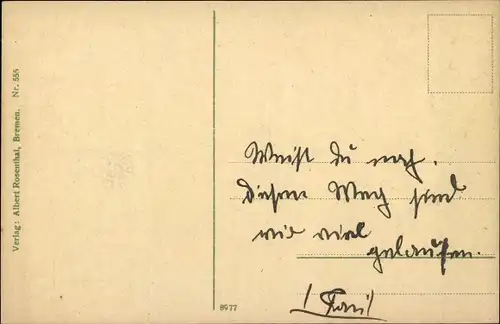 Verlag: Albert Rosenthal, Bremen. Nr. 555
Weist du noch,
diesen Weg sind
wir viel
gelaufen.
8977